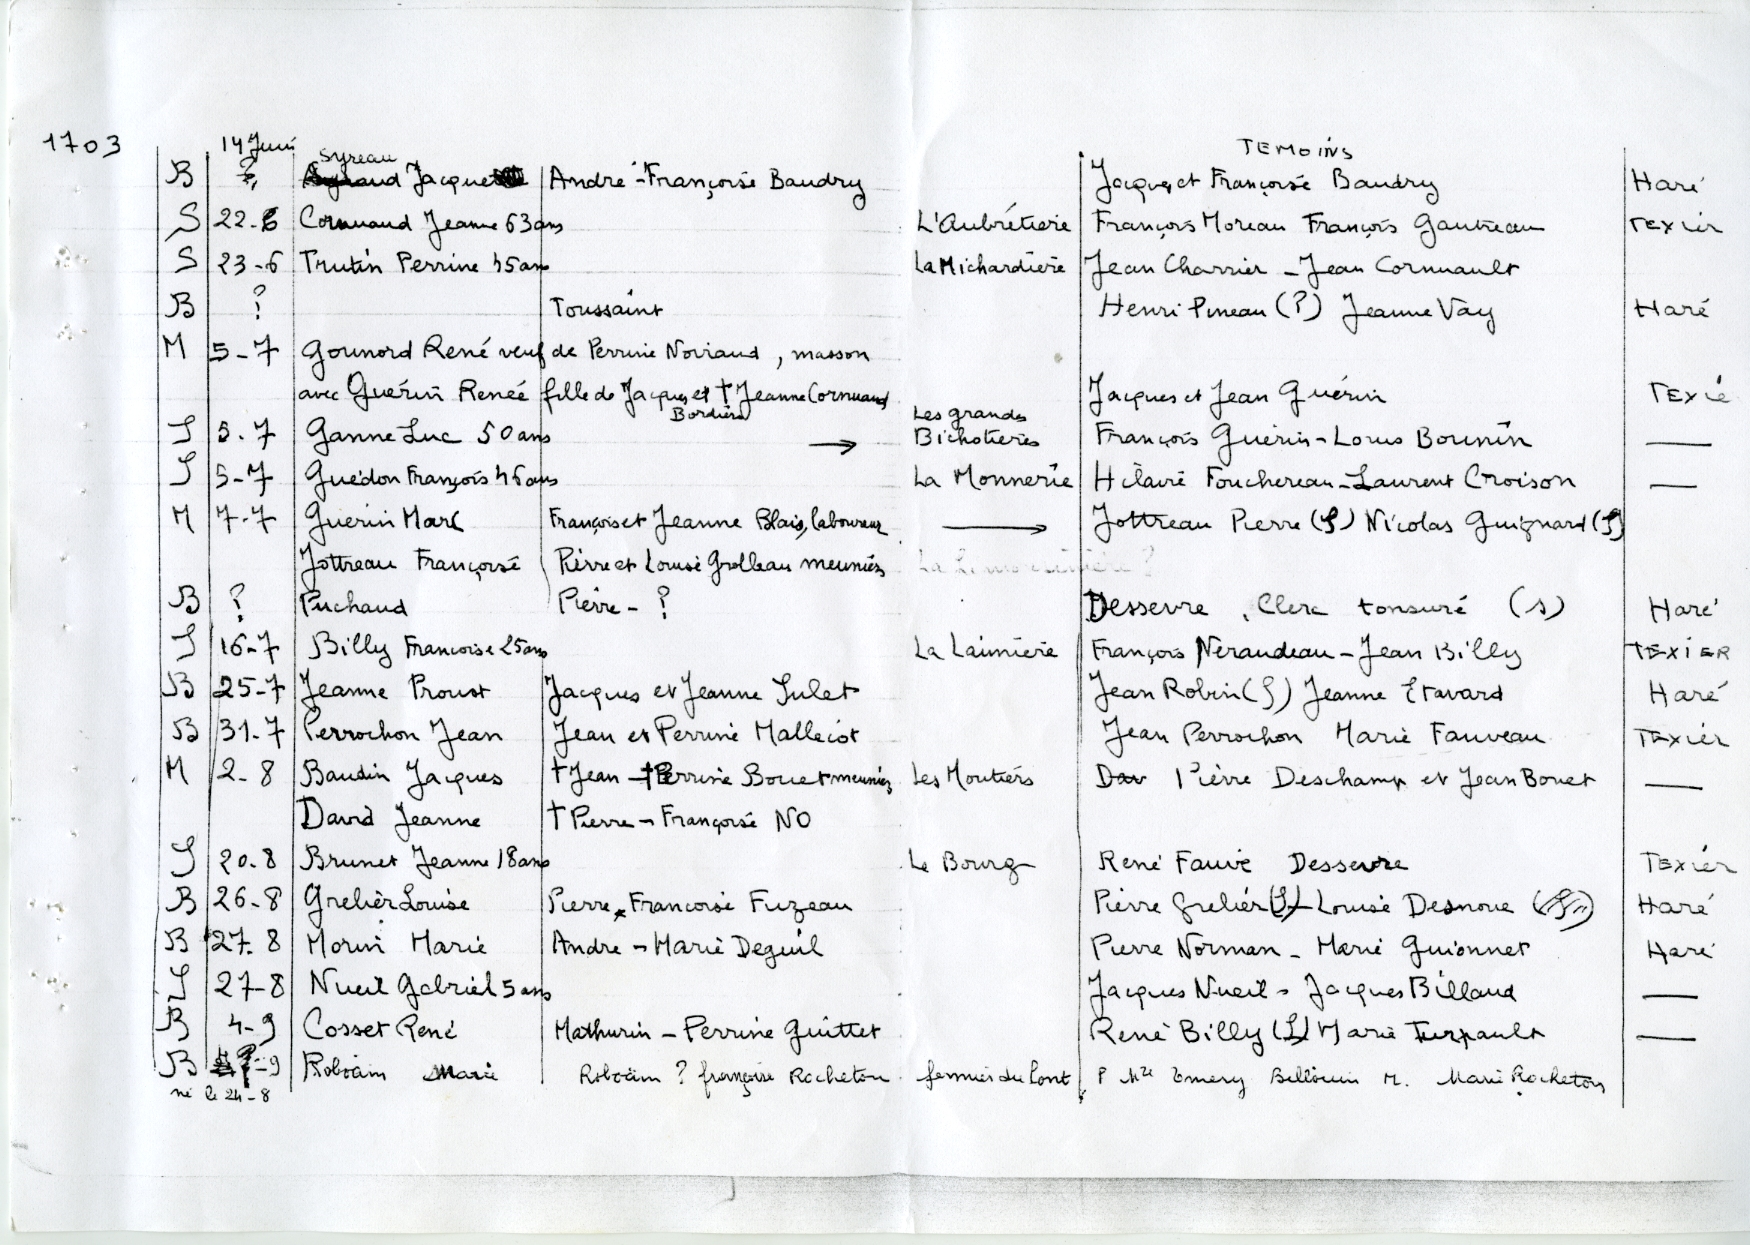 1703 14 Juin Syreau TEMOINS
B ? Jacques André - Françoise Baudry Jacques et Françoise Baudry Haré
S 22-6 Cornuaud Jeanne 63 ans L'Aubrétière François Moreau François Gautreau TEXIER
S 23-6 Trutin Perrine 45 ans La Michardière Jean Charrier - Jean Cornuault
B ? Toussaint Henri Pineau (?) Jeanne Vay Haré
M 5-7 Gounord René veuf de Perrine Noviaud, masson
avec Guérin Renée fille de Jacques et † Jeanne Cornuaud Jacques et Jean Guérin TEXIÉ
Bordière Les grandes
S 5-7 Ganne Luc 50 ans → Bichotières François Guérin - Louis Bounin —
S 5-7 Guédon François 46 ans La Monnerie Hilaire Fouchereau - Laurent Croison —
M 7-7 Guerin Marc François et Jeanne Blais, laboureur → Jottreau Pierre (S) Nicolas Guignard (S)
Jottreau Françoise Pierre et Louise Grolleau meunier La ?
B ? Puchaud Pierre - ? Dessevre, Clerc tonsuré (s) Haré
S 16-7 Billy Francoise 25 ans La Laimière François Neraudeau - Jean Billy TEXIER
B 25-7 Jeanne Proust Jacques et Jeanne Julet Jean Robin (S) Jeanne Etavard Haré
B 31-7 Perrochon Jean Jean et Perrine Malleciot Jean Perrochon Marie Fauveau TEXIER
M 2-8 Baudin Jacques † Jean - † Perrine Bouet meunier Les Moutiers Pierre Deschamp et Jean Bouet —
David Jeanne † Pierre - Françoise NO
S 20-8 Brunet Jeanne 18 ans Le Bourg René Fauve Dessevre TEXIER
B 26-8 Grelier Louise Pierre Francoise Fuzeau Pierre Grelier (S) - Louise Desnoue Haré
B 27-8 Morin Marie Andre - Marie Deguil Pierre Norman - Marie Guionnet Haré
S 27-8 Nueil Gabriel 5 ans Jacques Nueil - Jacques Billaud —
B 4-9 Cosset René Mathurin - Perrine Guittet René Billy (S) Marie Turpault —
B ?-9 Roboam Marie Roboam ? françoise Rocheton fermier du Pont P Mre Emery Bellouin M. Marie Rocheton
né le 24-8